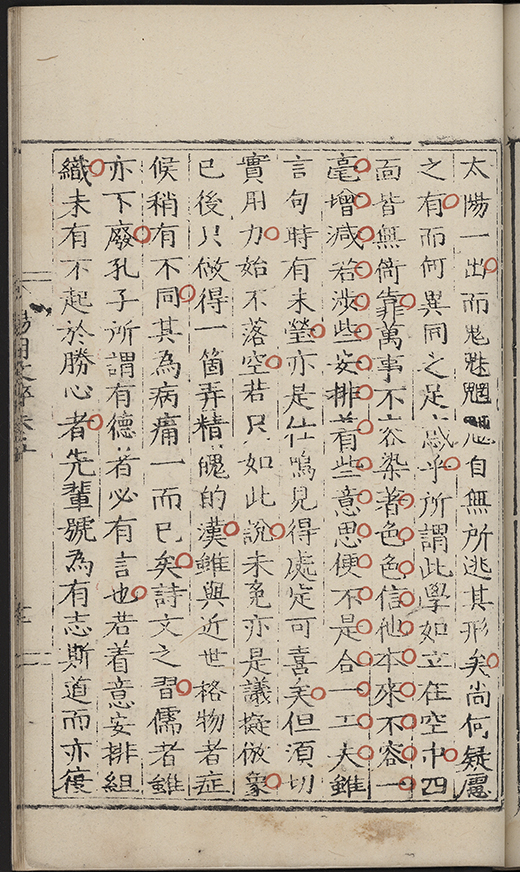 太陽一出而鬼魅魍魎自無所逃其形矣尚何疑慮
之有而何異同之足惑乎所謂此學如立在空中四
面皆無倚靠萬事不容染着色色信他本來不容一
毫增減若涉些安排着些意思便不是合一工夫雖
言句時有未瑩亦是仕鳴見得處定可喜矣但須切
實用力始不落空若只如此說未免亦是議擬倣象
已後只做得一箇弄精魄的漢雖與近世格物者症
候稍有不同其為病痛一而已矣詩文之習儒者雖
亦不廢孔子所謂有德者必有言也若着意安排組
織未有不起於勝心者先輩號為有志斯道而亦復
陽明文粹卷五